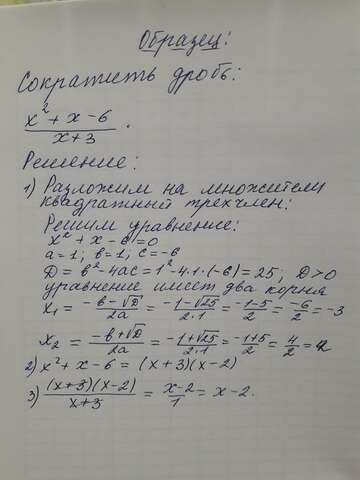 Образец:
Сократить дробь:
(x² + x - 6)/(x+3).
Решение:
1) Разложим на множители
квадратный трехчлен:
Решим уравнение:
x² + x - 6 = 0
a = 1; b = 1; c = -6
D = b² - 4ac = 1² - 4·1·(-6) = 25; D > 0
уравнение имеет два корня
x₁ = (-b - √D)/(2a) = (-1 - √25)/(2·1) = (-1-5)/2 = -6/2 = -3
x₂ = (-b + √D)/(2a) = (-1 + √25)/(2·1) = (-1+5)/2 = 4/2 = 2
2) x² + x - 6 = (x + 3)(x - 2)
3) ((x+3)(x-2))/(x+3) = (x-2)/1 = x - 2.